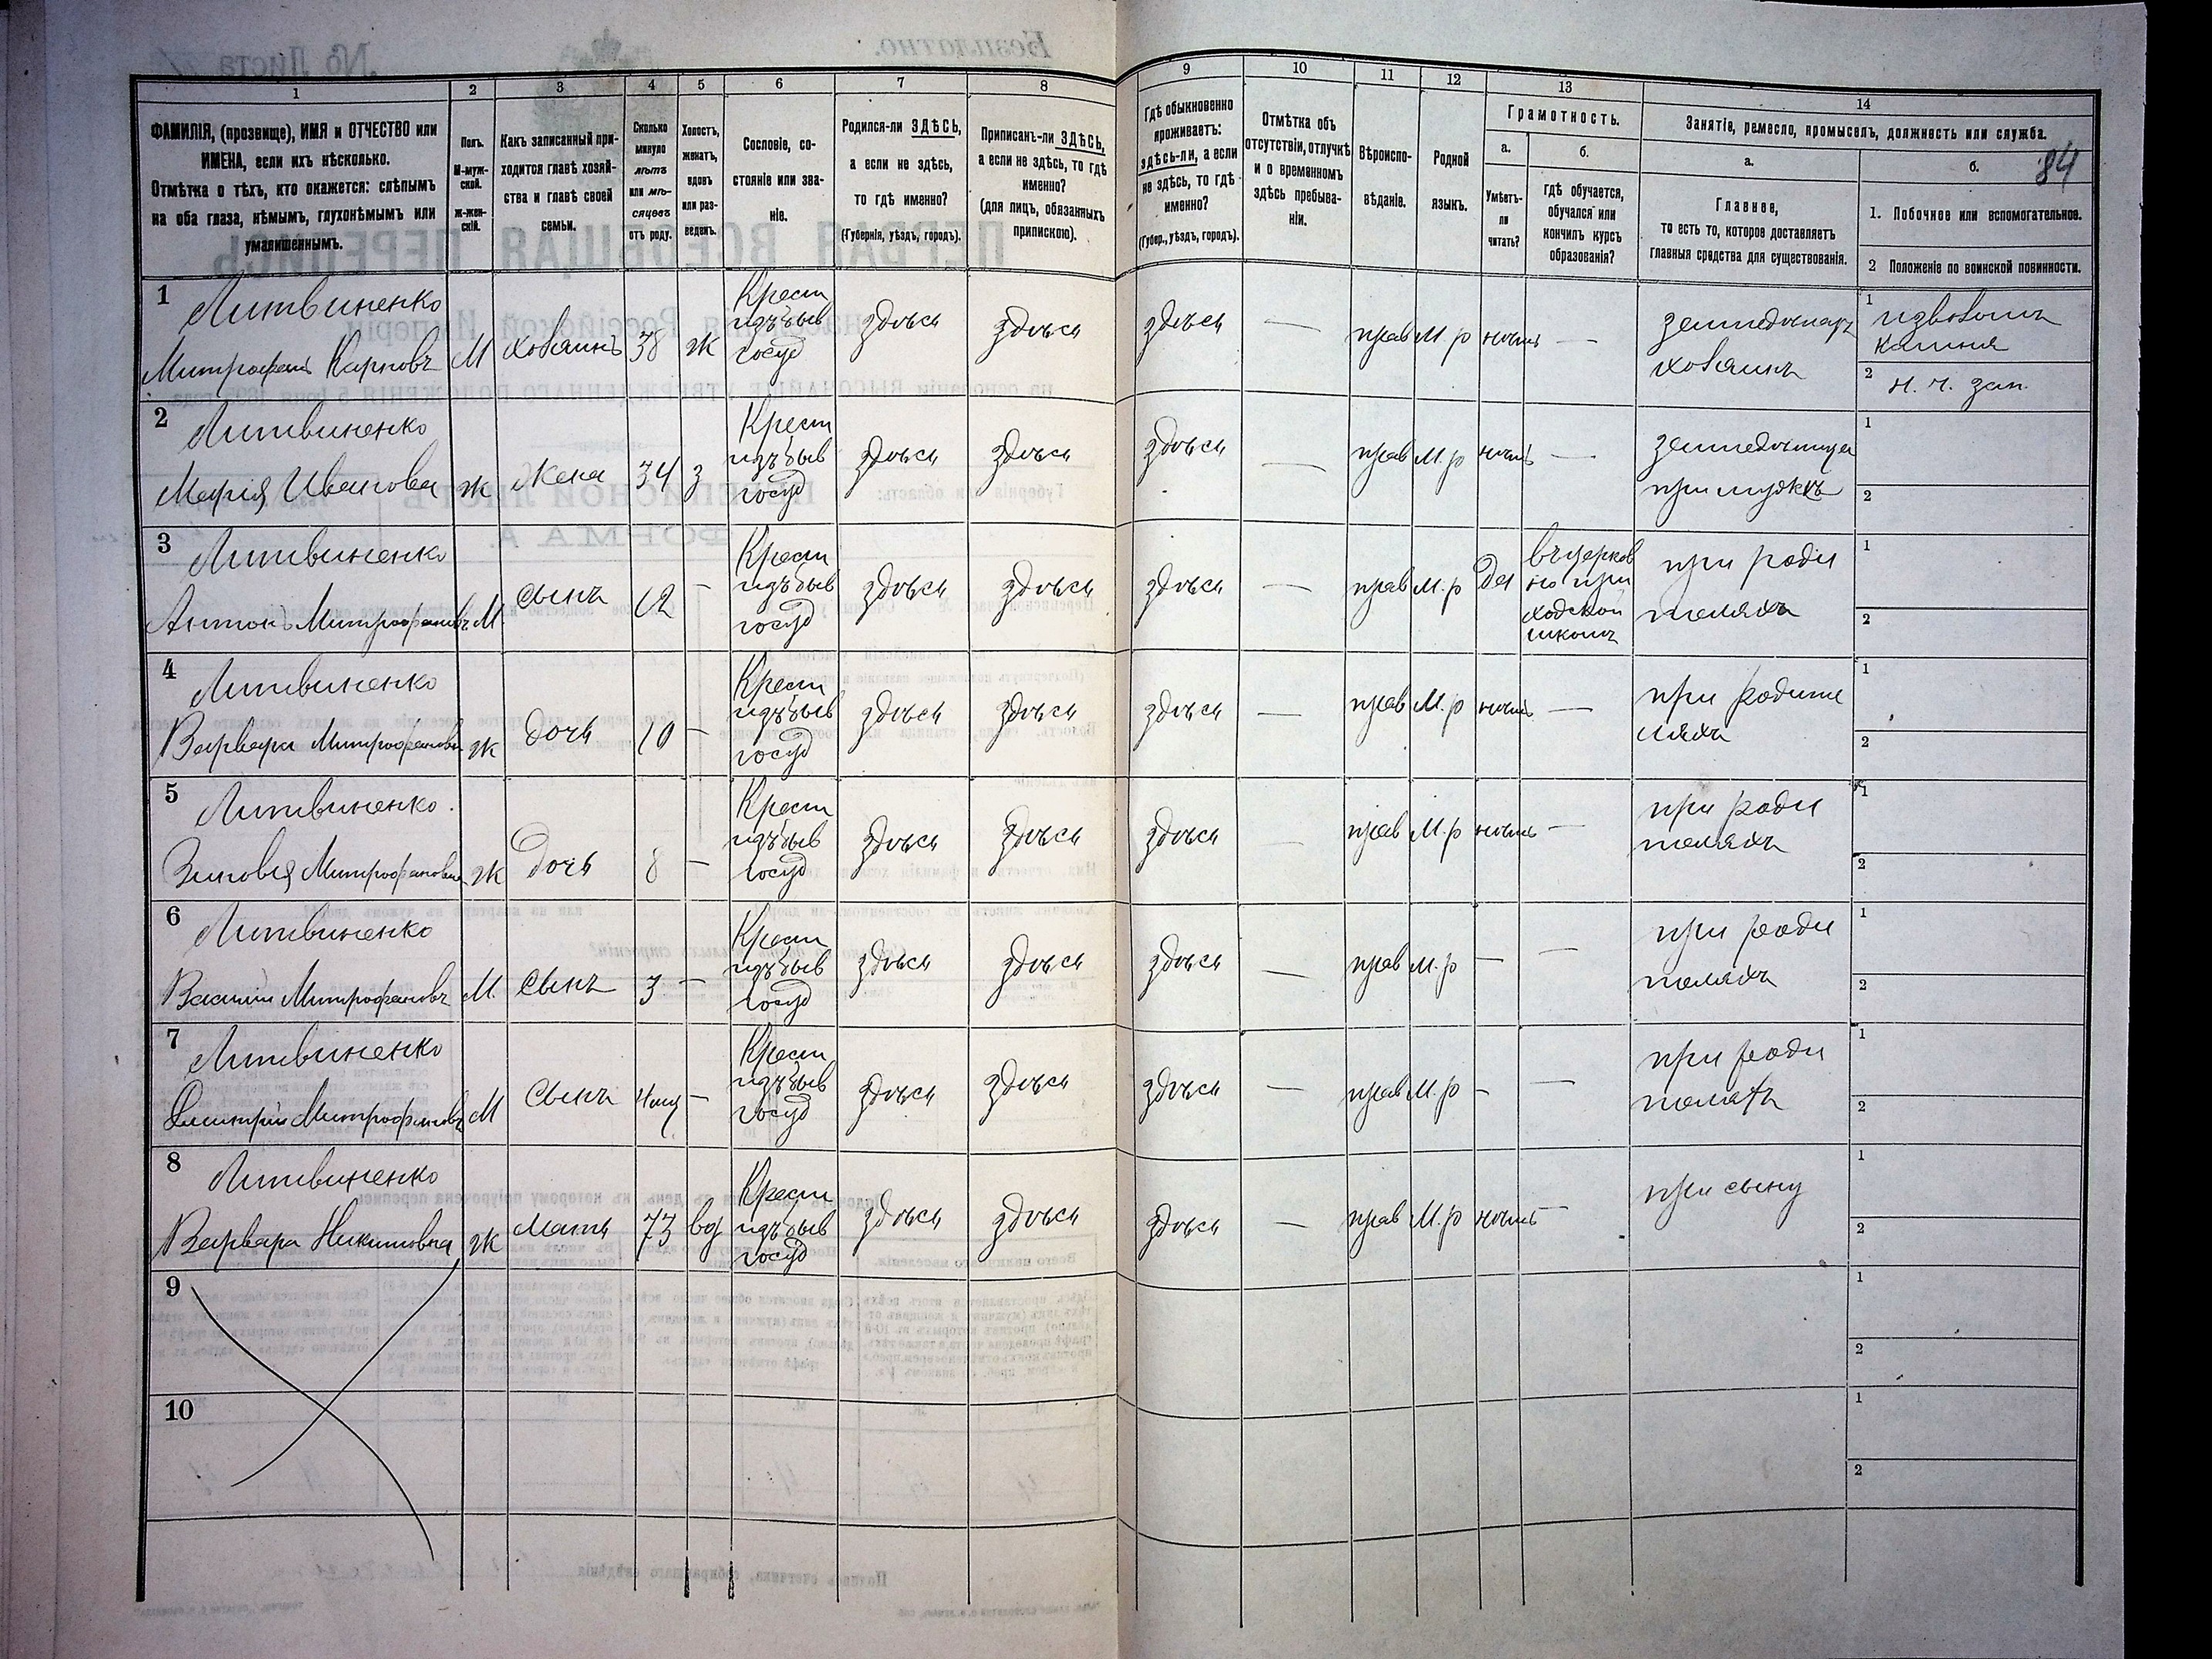 1
2
3
4
5
6
7
8
9
10
11
12
13
14
ФАМИЛІЯ, (прозвище), ИМЯ и ОТЧЕСТВО или
ИМЕНА, если ихъ нѣсколько.
Отмѣтка о тѣхъ, кто окажется: слѣпымъ
на оба глаза, нѣмымъ, глухонѣмымъ или
умалишеннымъ.
Полъ.
М-муж-
ской.
Ж-жен-
скій.
Какъ записанный при-
ходится главѣ хозяй-
ства и главѣ своей
семьи.
Сколько
минуло
лѣтъ
или мѣ-
сяцевъ
отъ роду.
Холостъ,
женатъ,
вдовъ
или раз-
веденъ.
Сословіе, со-
стояніе или зва-
ніе.
Родился-ли ЗДѢСЬ,
а если не здѣсь,
то гдѣ именно?
(Губернія, уѣздъ, городъ).
Приписанъ-ли ЗДѢСЬ,
а если не здѣсь, то гдѣ
именно?
(для лицъ, обязанныхъ
припискою).
Гдѣ обыкновенно
проживаетъ:
здѣсь-ли, а если
не здѣсь, то гдѣ
именно?
(Губер., уѣздъ, городъ).
Отмѣтка объ
отсутствіи, отлучкѣ
и о временномъ
здѣсь пребыва-
ніи.
Вѣроиспо-
вѣданіе.
Родной
языкъ.
Грамотность.
а.
Умѣетъ-
ли
читать?
б.
гдѣ обучается,
обучался или
кончилъ курсъ
образованія?
Занятіе, ремесло, промыселъ, должность или служба.
а.
Главное,
то есть то, которое доставляетъ
главныя средства для существованія.
б.
84
1. Побочное или вспомогательное.
2 Положеніе по воинской повинности.
1
Литвиненко
Митрофанъ Карповъ
М
хозяинъ
38
ж
Крест
изъ быв
госуд
здѣсь
здѣсь
здѣсь
—
прав
М. р
нѣтъ
—
земледѣлецъ
хозяинъ
1 извозомъ
камня
2 н. ч. зап.
2
Литвиненко
Марія Иванова
ж
Жена
34
з
Крест
изъ быв
госуд
здѣсь
здѣсь
здѣсь
—
прав
М. р
нѣтъ
—
при мужѣ
1
2
3
Литвиненко
Антонъ Митрофановъ
М.
сынъ
12
—
Крест
изъ быв
госуд
здѣсь
здѣсь
здѣсь
—
прав
М. р
да
въ церков
но при
ходской
школѣ
при роди
теляхъ
1
2
4
Литвиненко
Варвара Митрофанова
ж
дочь
10
—
Крест
изъ быв
госуд
здѣсь
здѣсь
здѣсь
—
прав
М. р
нѣтъ
—
при родите
ляхъ
1
2
5
Литвиненко
Зиновія Митрофанова
ж
дочь
8
—
Крест
изъ быв
госуд
здѣсь
здѣсь
здѣсь
—
прав
М. р
нѣтъ
—
при роди
теляхъ
1
2
6
Литвиненко
Василій Митрофановъ
М.
сынъ
3
—
Крест
изъ быв
госуд
здѣсь
здѣсь
здѣсь
—
прав
М. р
—
—
при роди
теляхъ
1
2
7
Литвиненко
Димитрій Митрофановъ
М
сынъ
—
Крест
изъ быв
госуд
здѣсь
здѣсь
здѣсь
—
прав
М. р
—
—
при роди
теляхъ
1
2
8
Литвиненко
Варвара Никитовна
ж
мать
73
вд
Крест
изъ быв
госуд
здѣсь
здѣсь
здѣсь
—
прав
М. р
нѣтъ
—
при сыну
1
2
9
1
2
10
1
2